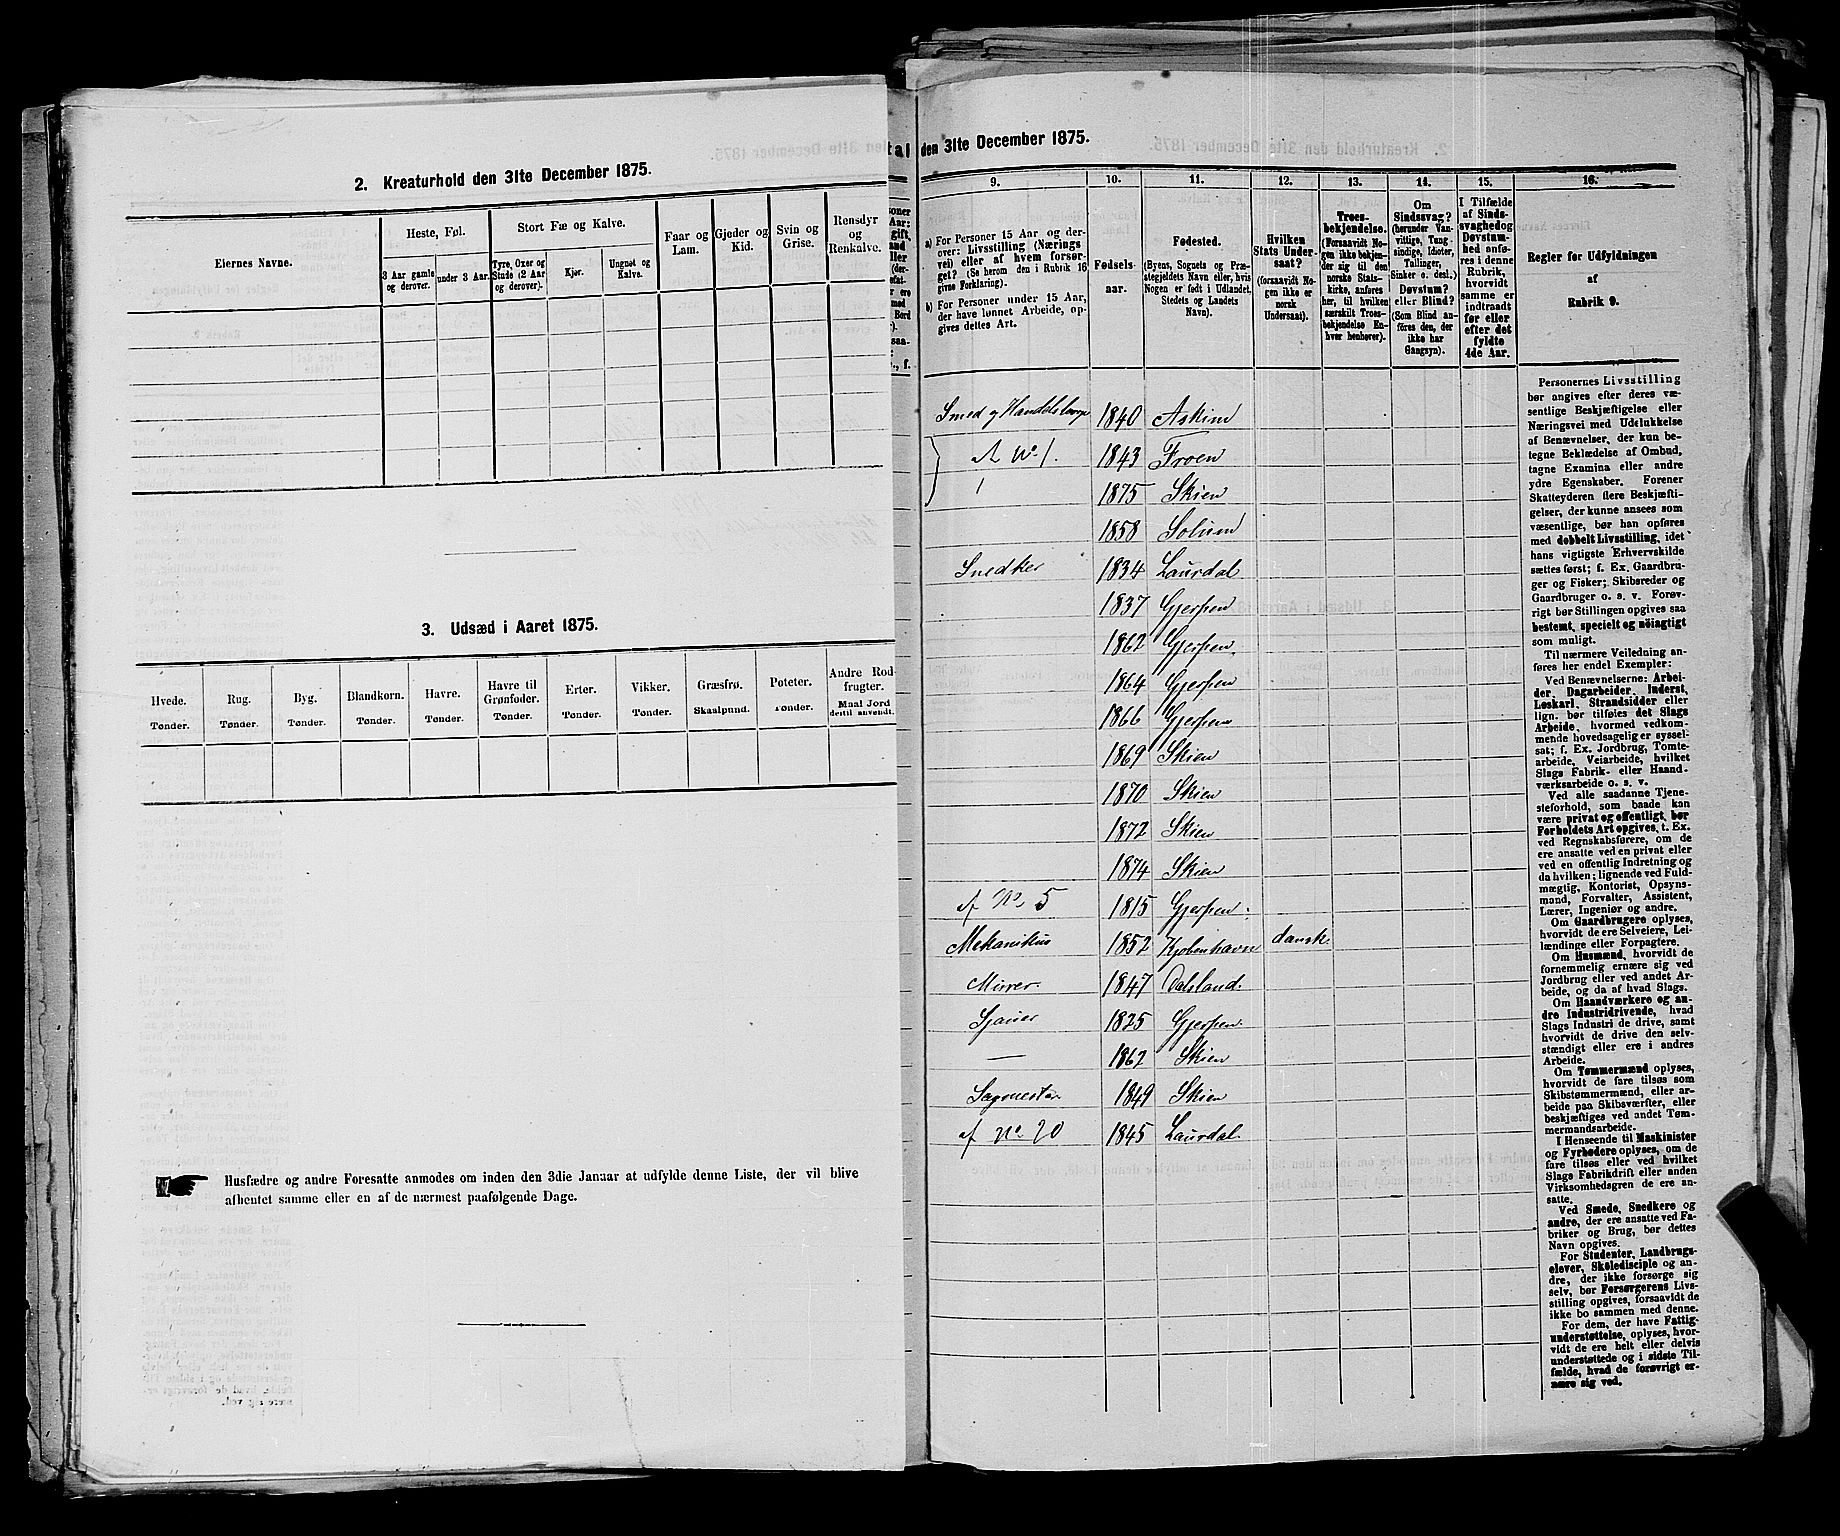 2. Kreaturhold den 31te December 1875.
Eiernes Navne.
Heste, Føl.
Stort Fæ og Kalve.
Faar og Lam.
Gjeder og Kid.
Svin og Grise.
Rensdyr og Renkalve.
3 Aar gamle og derover.
under 3 Aar.
Tyre, Oxer og Stude (2 Aar og derover).
Kjør.
Ungnøt og Kalve.
3. Udsæd i Aaret 1875.
Hvede.
Rug.
Byg.
Blandkorn.
Havre.
Havre til Grønfoder.
Erter.
Vikker.
Græsfrø.
Poteter.
Andre Rodfrugter.
Tønder.
Tønder.
Tønder.
Tønder.
Tønder.
Tønder.
Tønder.
Tønder.
Skaalpund.
Tønder.
Maal Jord dertil anvendt.
Husfædre og andre Foresatte anmodes om inden den 3die Januar at udfylde denne Liste, der vil blive
afhentet samme eller en af de nærmest paafølgende Dage.
den 31te December 1875.
9. 10. 11. 12. 13. 14. 15. 16.
a) For Personer 15 Aar og derover: Livsstilling (Næringsvei) eller af hvem forsørget? (Se herom den i Rubrik 16 givne Forklaring).
b) For Personer under 15 Aar, der have lønnet Arbeide, opgives dettes Art.
Fødselsaar.
Fødested.
(Byens, Sognets og Præstegjeldets Navn eller, hvis Nogen er født i Udlandet, Stedets og Landets Navn).
Hvilken Stats Undersaat?
(forsaavidt Nogen ikke er norsk Undersaat).
Troesbekjendelse.
(Forsaavidt Nogen ikke bekjender sig til den norske Statskirke, anføres her, til hvilken særskilt Troesbekjendelse Enhver henhører).
Om Sindssvag? (herunder Vanvittige, Tungsindige, Idioter, Tullinger, Sinker o. desl.) Døvstum? eller Blind? (Som Blind anføres den, der ikke har Gangsyn).
I Tilfælde af Sindssvaghed og Døvstumhed anføres i denne Rubrik, hvorvidt samme er indtraadt før eller efter det fyldte 4de Aar.
Regler for Udfyldningen
af
Rubrik 9.
Smed og 1840 Askim
af No 1. 1843 Froen
1875 Skien
1858 Solum
Snedker 1834 Laurdal
1837 Gjerpen
1862 Gjerpen
1864 Gjerpen
1866 Gjerpen
1869 Skien
1870 Skien
1872 Skien
1874 Skien
af No. 5 1815 Gjerpen
Mekanikus 1852 Kjøbenhavn dansk.
Murer 1847 Dalsland.
Sjauer 1825 Gjerpen
— 1862 Skien
Sagmester 1849 Skien
af No. 20 1845 Laurdal.
Personernes Livsstilling
bør angives efter deres væ-
sentlige Beskjæftigelse eller
Næringsvei med Udelukkelse
af Benævnelser, der kun be-
tegne Beklædelse af Ombud,
tagne Examina eller andre
ydre Egenskaber. Forener
Skatteyderen flere Beskjæfti-
gelser, der kunne ansees som
væsentlige, bør han opføres
med dobbelt Livsstilling, idet
hans vigtigste Erhvervskilde
sættes først; f. Ex. Gaardbru-
ger og Fisker; Skibsreder og
Gaardbruger o. s. v. Forøv-
rigt bør Stillingen opgives saa
bestemt, specielt og nøiagtigt
som muligt.
Til nærmere Veiledning an-
føres her endel Exempler:
Ved Benævnelserne: Arbei-
der, Dagarbeider, Inderst,
Løskarl, Strandsidder eller
lign. bør tilføies det Slags
Arbeide, hvormed vedkom-
mende hovedsagelig er syssel-
sat; f. Ex. Jordbrug, Tomte-
arbeide, Veiarbeide, hvilket
Slags Fabrik- eller Haand-
værksarbeide o. s. v.
Ved alle saadanne Tjene-
steforhold, som baade kan
være privat og offentligt, bør
Forholdets Art opgives, t. Ex.
ved Regnskabsførere, om de
ere ansatte ved en privat eller
ved en offentlig Indretning og
da hvilken; lignende ved Fuld-
mægtig, Kontorist, Opsyns-
mand, Forvalter, Assistent,
Lærer, Ingeniør og andre.
Om Gaardbrugere oplyses,
hvorvidt de ere Selveiere, Lei-
lændinge eller Forpagtere.
Om Husmænd, hvorvidt de
fornemmelig ernære sig ved
Jordbrug eller ved andet Ar-
beide, og da af hvad Slags.
Om Haandværkere og an-
dre Industridrivende, hvad
Slags Industri de drive, samt
hvorvidt de drive den selv-
stændigt eller ere i andres
Arbeide.
Om Tømmermænd oplyses,
hvorvidt de fare tilsøs som
Skibstømmermænd, eller ar-
beide paa Skibsværfter, eller
beskjæftiges ved andet Tøm-
mermandsarbeide.
I Henseende til Maskinister
og Fyrbødere oplyses, om de
fare tilsøs eller ved hvilket
Slags Fabrikdrift eller anden
Virksomhedsgren de ere an-
satte.
Ved Smede, Snedkere og
andre, der ere ansatte ved Fa-
briker og Brug, bør dettes
Navn opgives.
For Studenter, Landbrugs-
elever, Skoledisciple og an-
dre, der ikke forsørge sig
selv, bør Forsørgerens Livs-
stilling opgives, forsaavidt de
ikke bo sammen med denne.
For dem, der have Fattig-
understøttelse, oplyses, hvor-
vidt de ere helt eller delvis
understøttede og i sidste Til-
fælde, hvad de forøvrigt er-
nære sig ved.